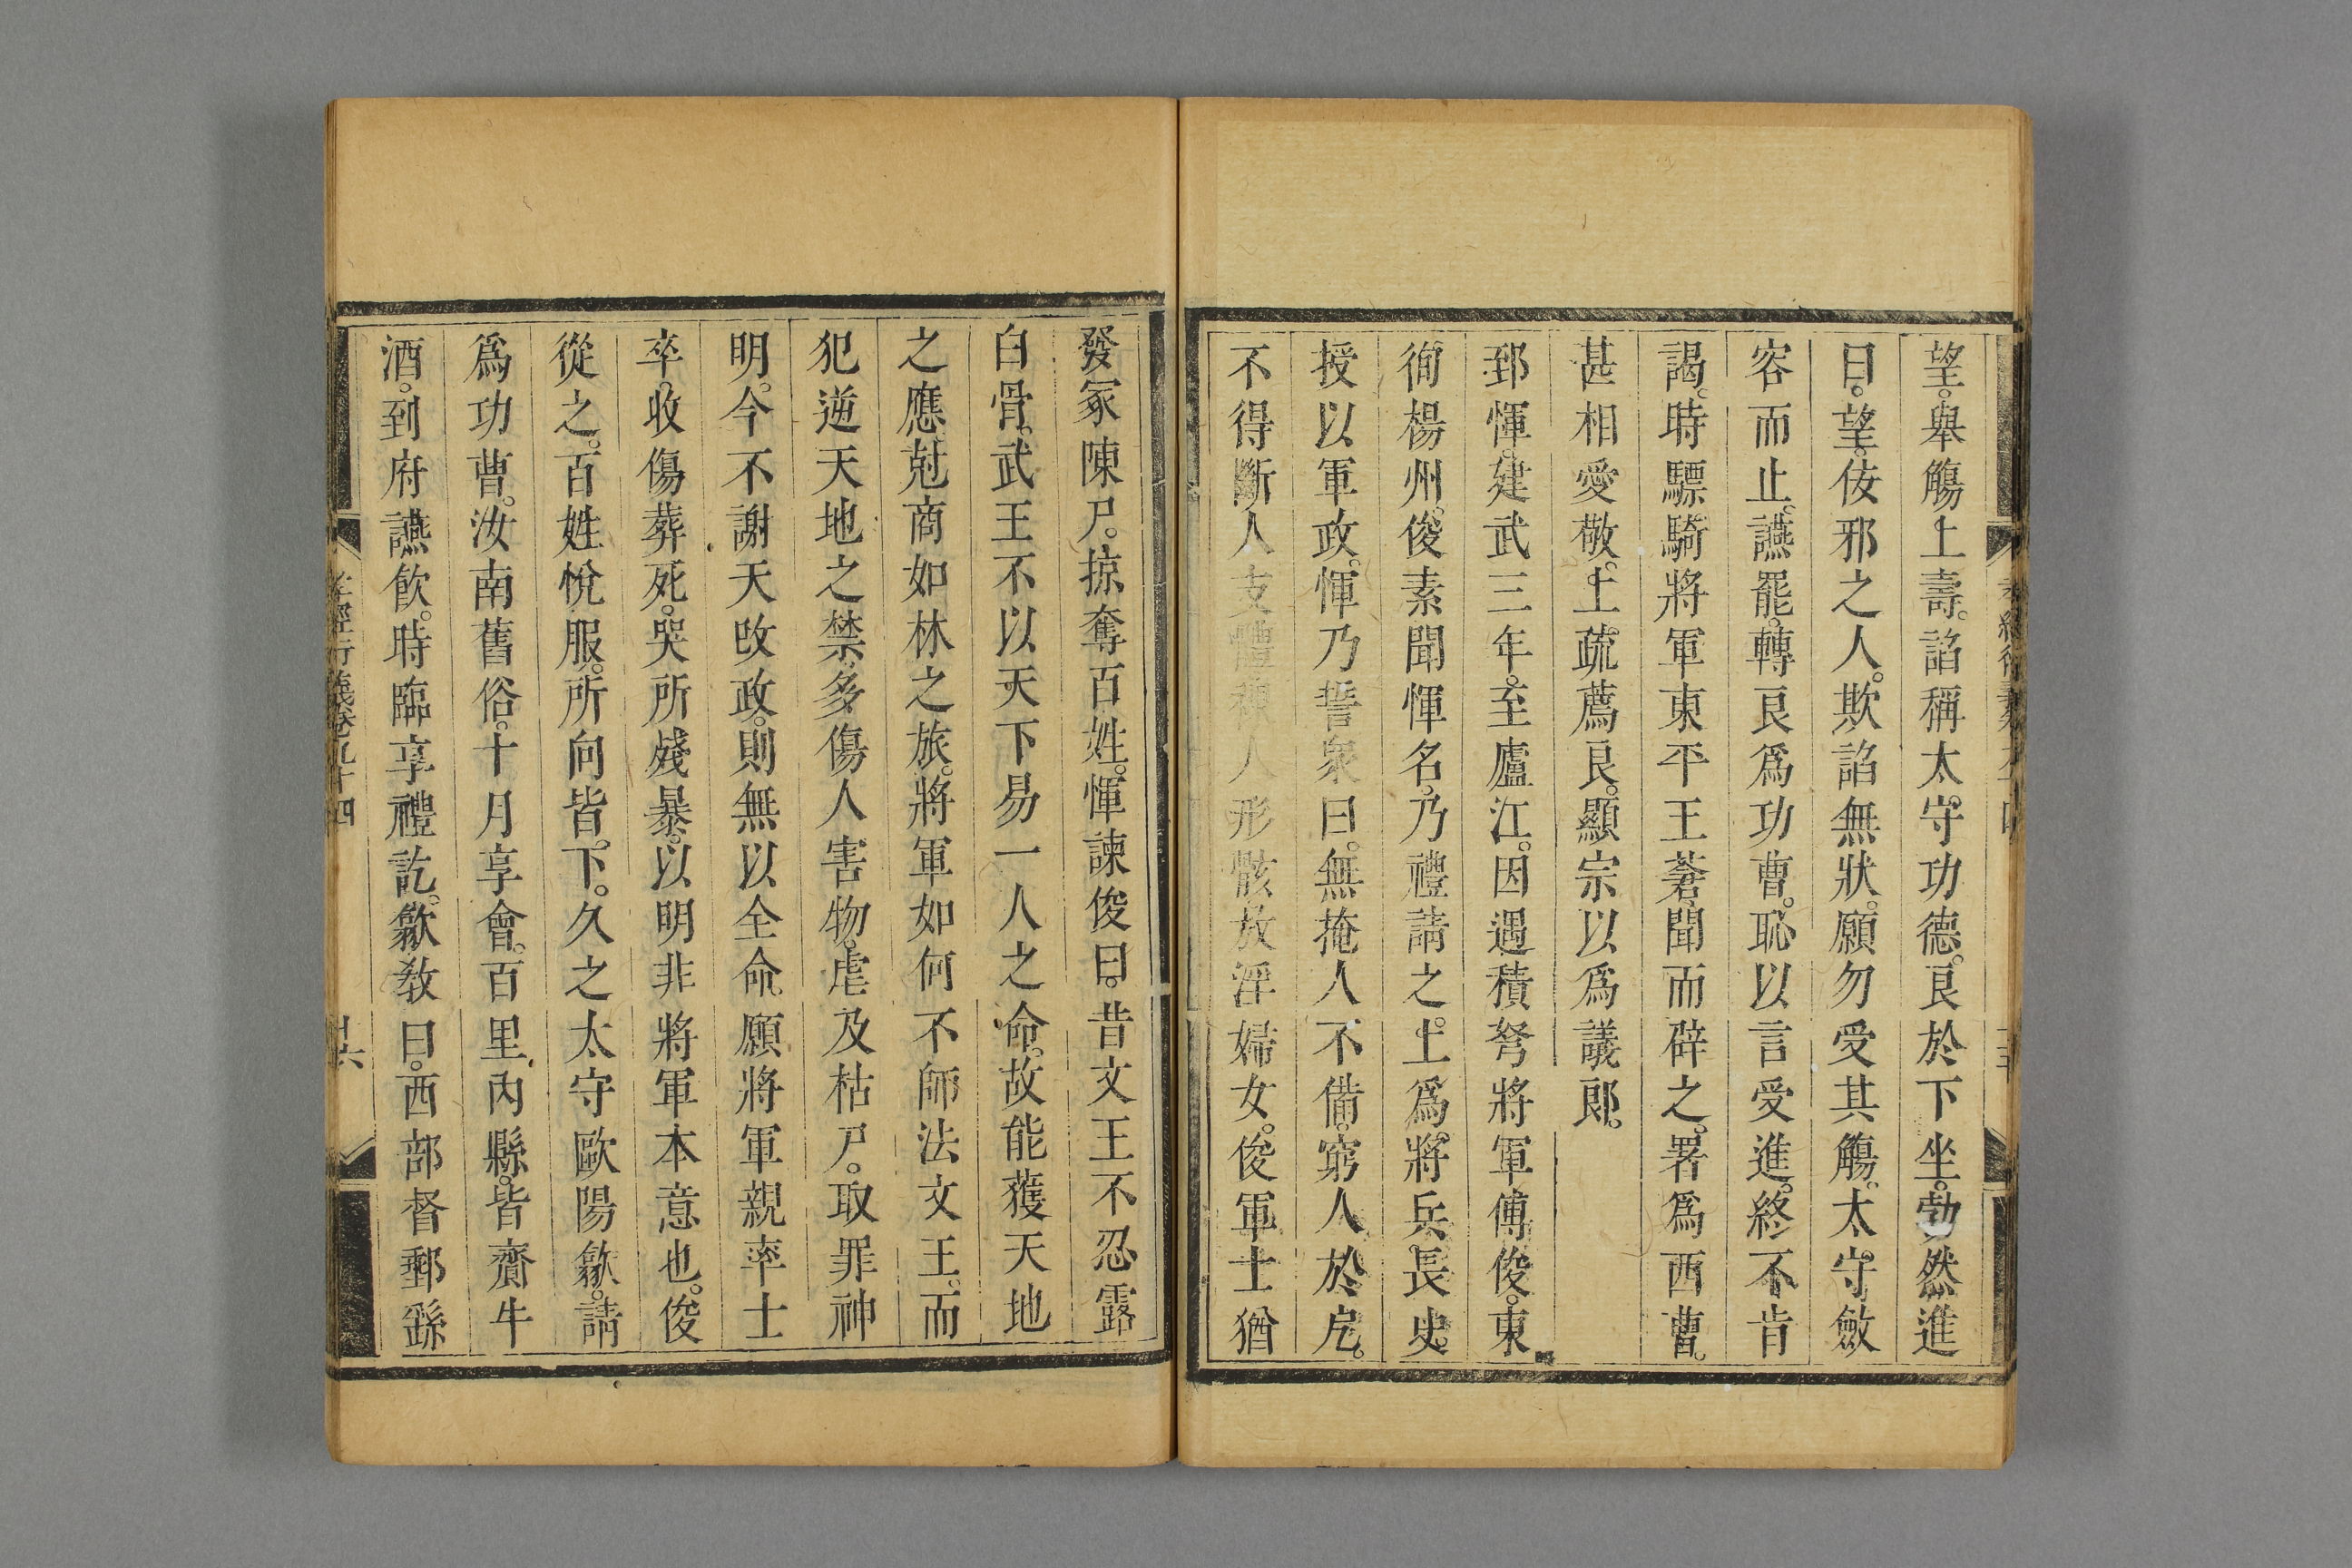 望。舉觴上壽。諂稱太守功德。良於下坐。勃然進
曰。望。佞邪之人。欺諂無狀。願勿受其觴。太守斂
容而止。讌罷。轉良爲功曹。恥以言受進。終不肯
謁。時驃騎將軍東平王蒼。聞而辟之。署爲西曹。
甚相愛敬。上疏薦良。顯宗以爲議郎。
郅惲。建武三年。至廬江。因遇積弩將軍傅俊。東
徇楊州。俊素聞惲名。乃禮請之。上爲將兵長史。
授以軍政。惲乃誓衆曰。無掩人不備。窮人於戹。
不得斷人支體。裸人形骸。放淫婦女。俊軍士猶
發冢陳尸。掠奪百姓。惲諫俊曰。昔文王不忍露
白骨。武王不以天下易一人之命。故能獲天地
之應。尅商如林之旅。將軍如何不師法文王。而
犯逆天地之禁。多傷人害物。虐及枯尸。取罪神
明。今不謝天改政。則無以全命。願將軍親率士
卒。收傷葬死。哭所殘暴。以明非將軍本意也。俊
從之。百姓悅服。所向皆下。久之太守歐陽歙。請
爲功曹。汝南舊俗。十月享會。百里內縣。皆齎牛
酒。到府讌飲。時臨享禮訖。歙敎曰。西部督郵繇
孝經衍義卷九十四
廿六